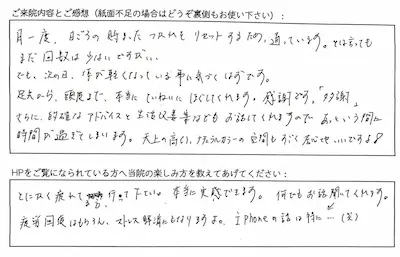 ご来院内容とご感想（紙面不足の場合はどうぞ裏側もお使い下さい）：
月一度、日ごろの貯まったつかれをリセットするため、通っています。とは言っても
まだ回数は少ないですが…
でも、次の日、体が軽くなっている事に気づくはずです。
足先から、頭皮まで、本当にていねいにほぐしてくれます。感謝です。「多謝」
さらに、的確なアドバイスと生活改善などもお話してくれますので、あっという間に
時間が過ぎてしまいます。天上の高い、ナチュラルカラーの空間もすごく居心地いいですよ♪
HPをご覧になられている方へ当院の楽しみ方を教えてあげてください：
とにかく疲れて行って下さい。本当に実感できます。何でもお話聞いてくれます。
疲労回復はもちろん、ストレス解消にもなりますよ。iPhoneの話は特に…（笑）